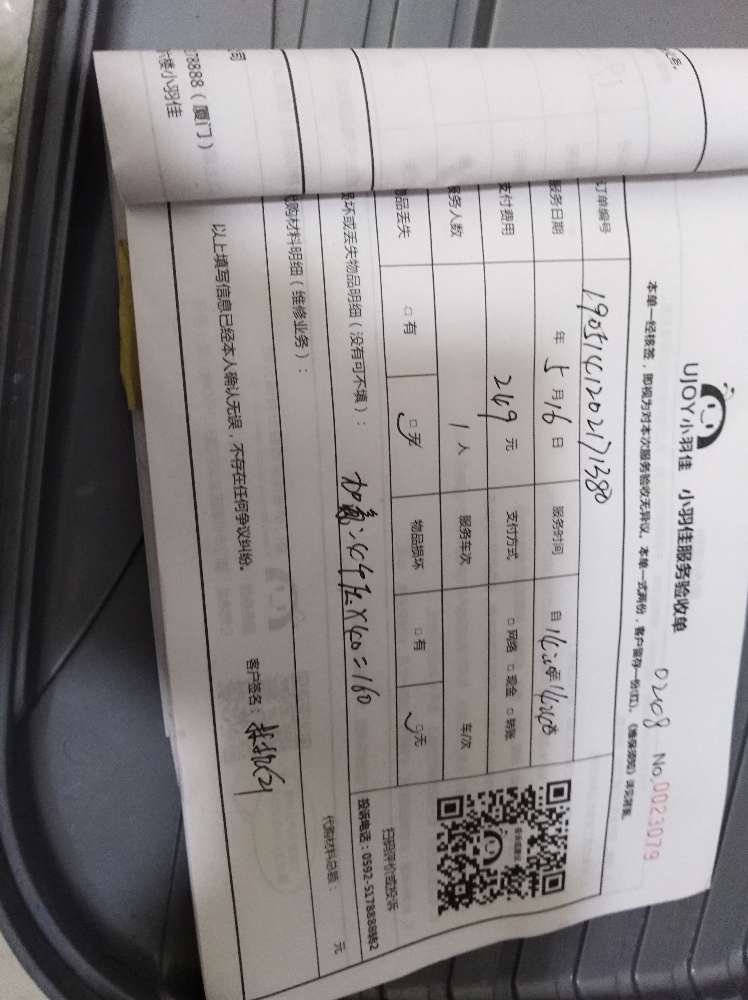 UJOY小羽佳 小羽佳服务验收单
0208 No.0023079
本单一经核签，即视为对本次服务验收无异议。本单一式两份，客户留存一份(红)。《维保须知》详见背面。
订单编号 1905141202171380
服务日期 年 5 月 16 日 服务时间 自
支付费用 249 元 支付方式 □ 网络 □ 现金 □ 转账
服务人数 1 人 服务车次 车/次
物品丢失 □ 有 □ 无 物品损坏 □ 有 □ 无
损坏或丢失物品明细（没有可不填）：
加氟：4个压×40=160
扫码评价或投诉
投诉电话：0592-5178888转2
代购材料明细（维修业务）：
代购材料总额： 元
以上填写信息已经本人确认无误，不存在任何争议纠纷。
客户签名：
公司
78888（厦门）
楼小羽佳